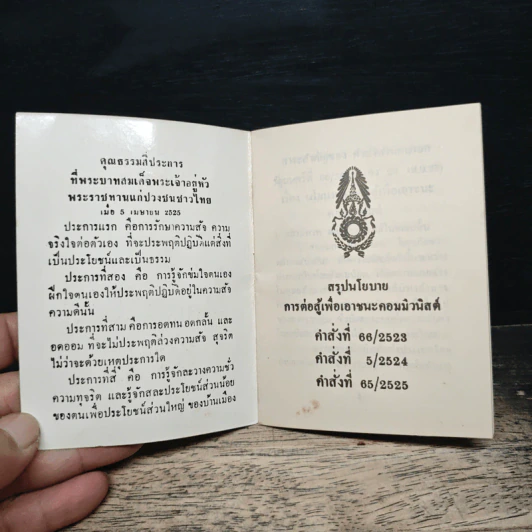 คุณธรรมสี่ประการ
ที่พระบาทสมเด็จพระเจ้าอยู่หัว
พระราชทานแก่ปวงชนชาวไทย
เมื่อ 5 เมษายน 2525
ประการแรก คือการรักษาความสัจ ความ
จริงใจต่อตัวเอง ที่จะประพฤติปฏิบัติแต่สิ่งที่
เป็นประโยชน์และเป็นธรรม
ประการที่สอง คือ การรู้จักข่มใจตนเอง
ฝึกใจตนเองให้ประพฤติปฏิบัติอยู่ในความสัจ
ความดีนั้น
ประการที่สาม คือการอดทนอดกลั้น และ
อดออม ที่จะไม่ประพฤติล่วงความสัจ สุจริต
ไม่ว่าจะด้วยเหตุประการใด
ประการที่สี่ คือ การรู้จักละวางความชั่ว
ความทุจริต และรู้จักสละประโยชน์ส่วนน้อย
ของตนเพื่อประโยชน์ส่วนใหญ่ ของบ้านเมือง
สรุปนโยบาย
การต่อสู้เพื่อเอาชนะคอมมิวนิสต์
คำสั่งที่ 66/2523
คำสั่งที่ 5/2524
คำสั่งที่ 65/2525